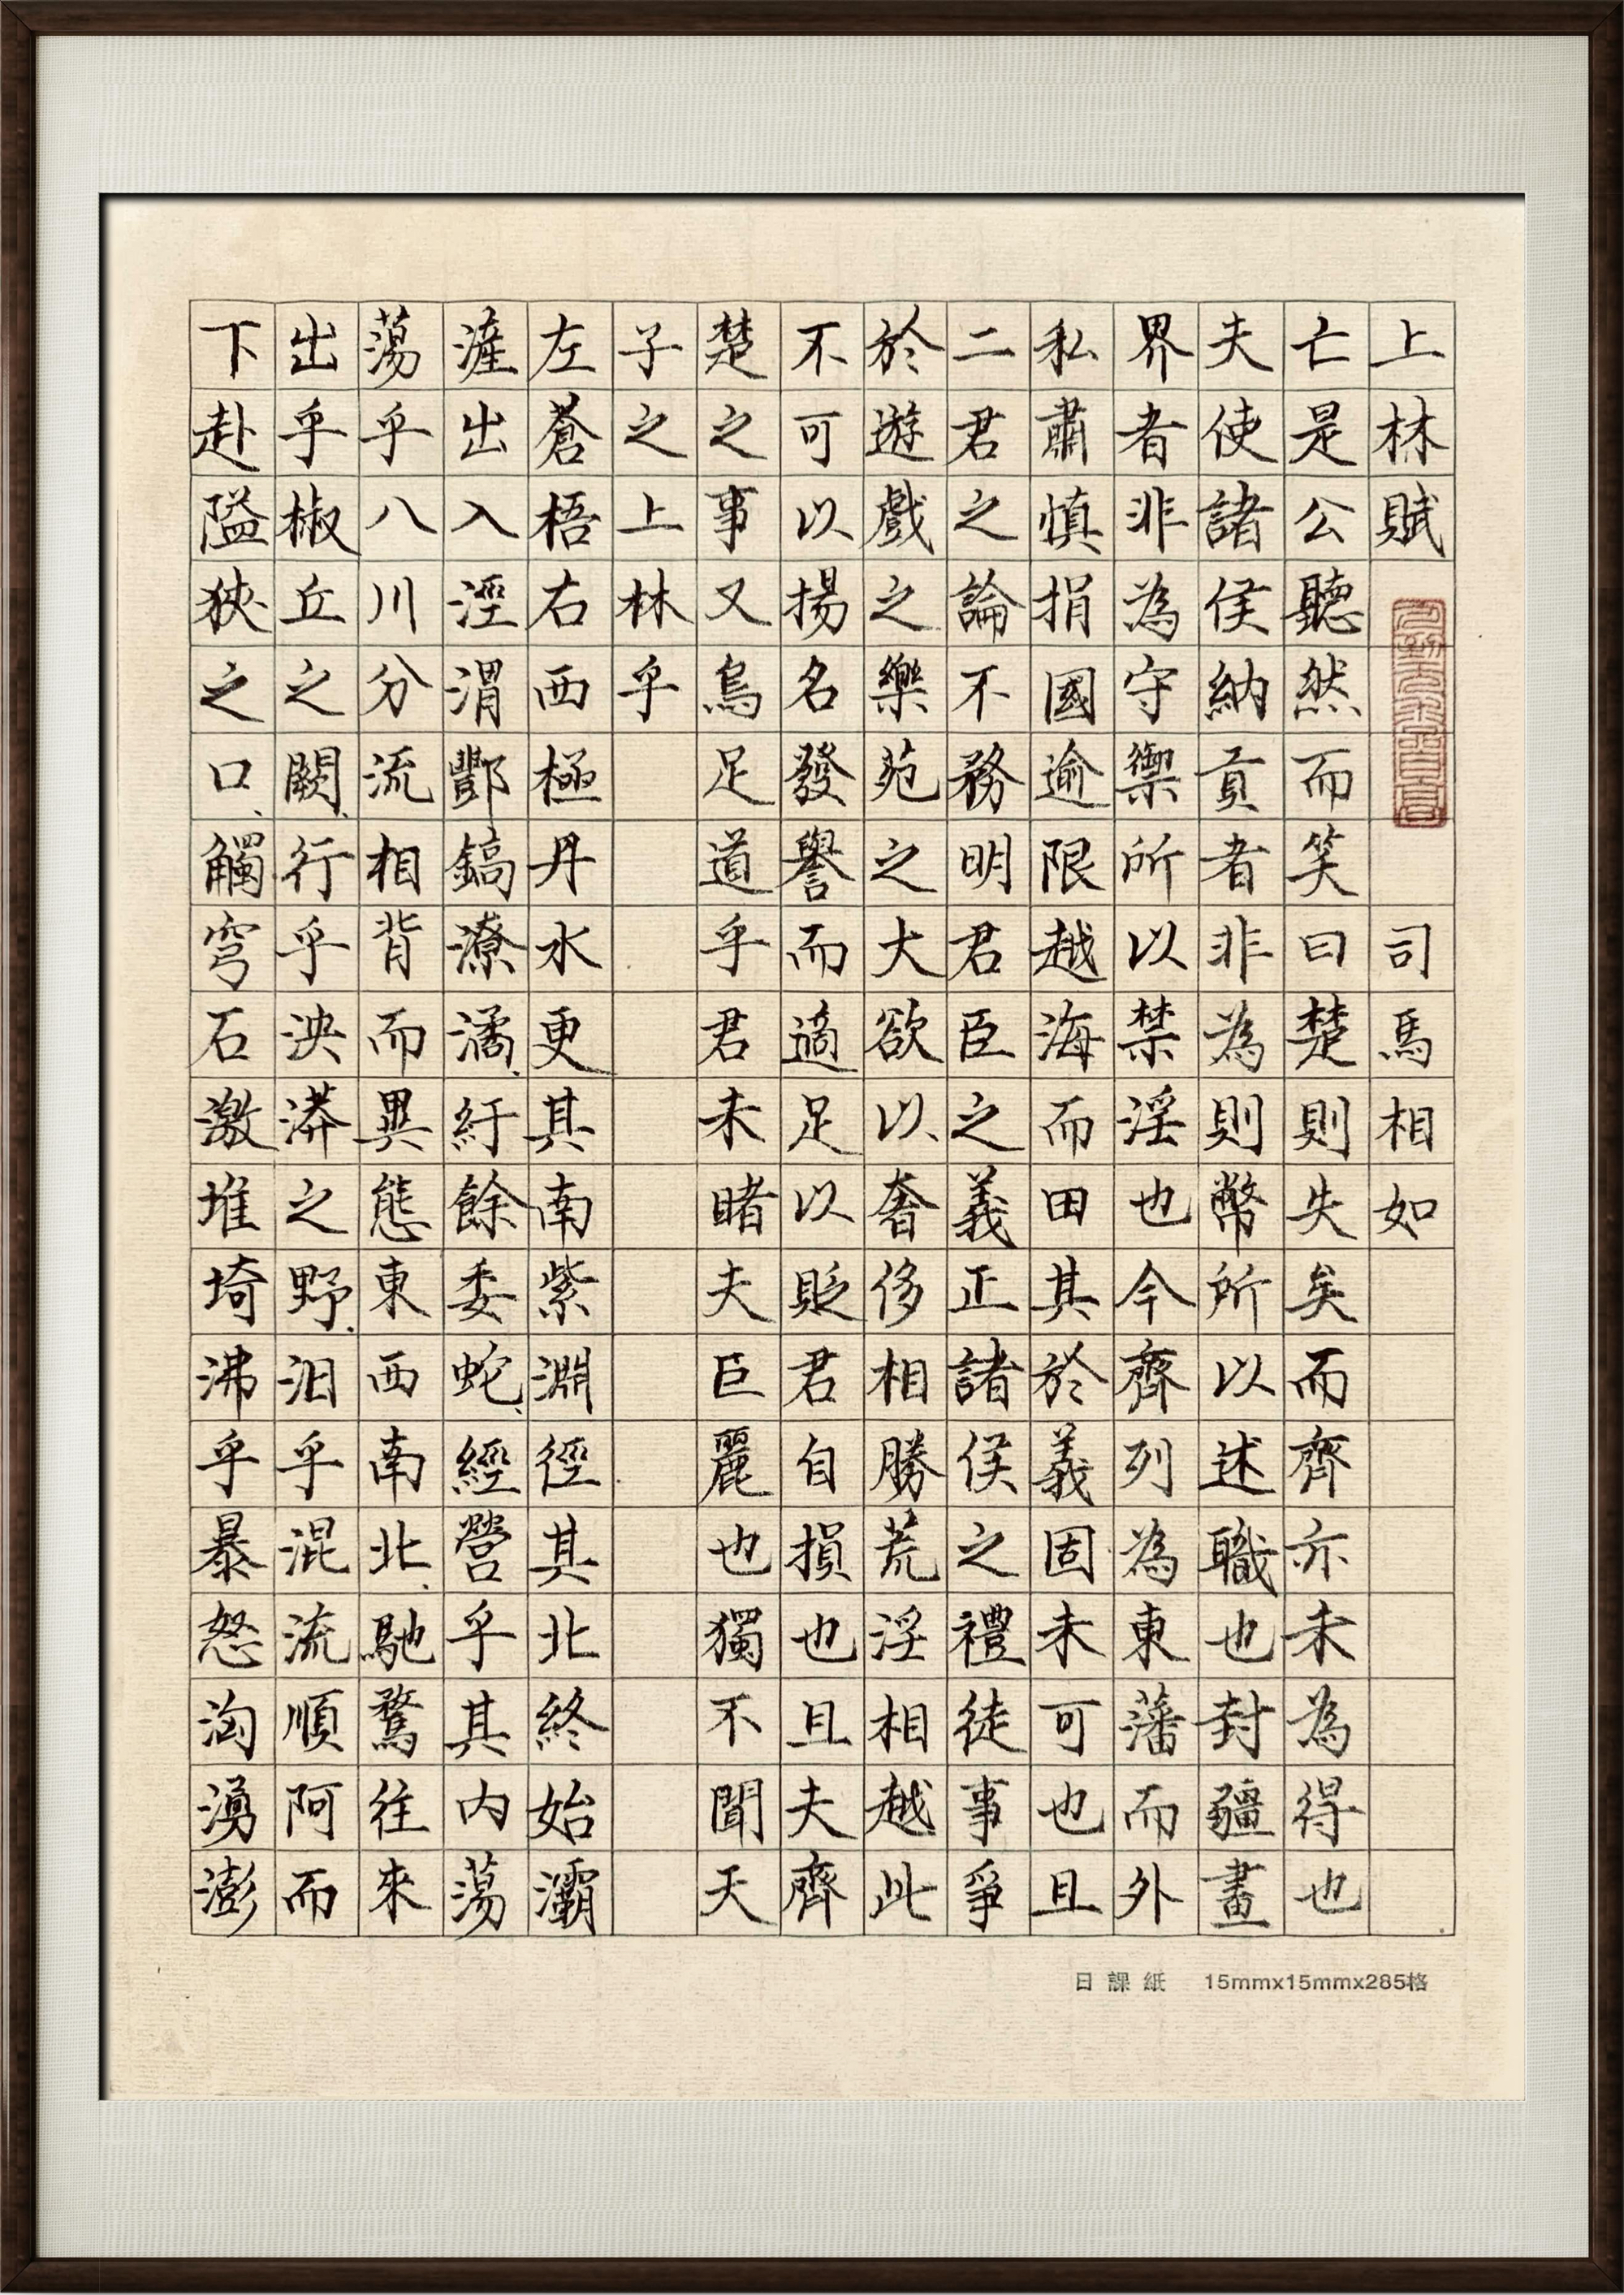 上林賦 司馬相如
亡是公聽然而笑曰楚則失矣而齊亦未為得也
夫使諸侯納貢者非為則幣所以述職也封疆畫
界者非為守禦所以禁淫也今齊列為東藩而外
私肅慎捐國逾限越海而田其於義固未可也且
二君之論不務明君臣之義正諸侯之禮徒事爭
於遊戲之樂苑之大欲以奢侈相勝荒淫相越此
不可以揚名發譽而適足以貶君自損也且夫齊
楚之事又烏足道乎君未睹夫巨麗也獨不聞天
子之上林乎
左蒼梧右西極丹水更其南紫淵徑其北終始灞
滻出入涇渭酆鎬潦潏紆餘委蛇經營乎其內蕩
蕩乎八川分流相背而異態東西南北馳騖往來
出乎椒丘之闕行乎泱漭之野汩乎混流順阿而
下赴隘狹之口觸穹石激堆埼沸乎暴怒洶湧澎
日課紙 15mmx15mmx285格